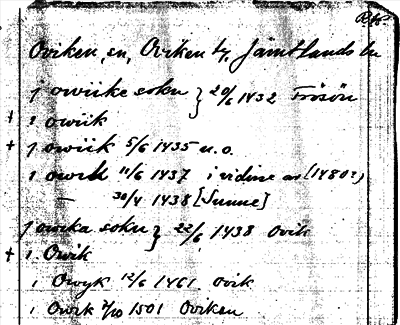 Oviken, sn, Oviken tg, Jämtlands län
j owiike sokn } 20/6 1432 Frösön
† i owiik
† j owiik 5/6 1435 u.o.
i owik 11/6 1437 i vidime av (1480?)
— 30/4 1438 [Sunne]
j owika sokn } 22/6 1438 Ovik
† i Owik
i Owyk 12/6 1461 Ovik
i Owik 1501 Oviken